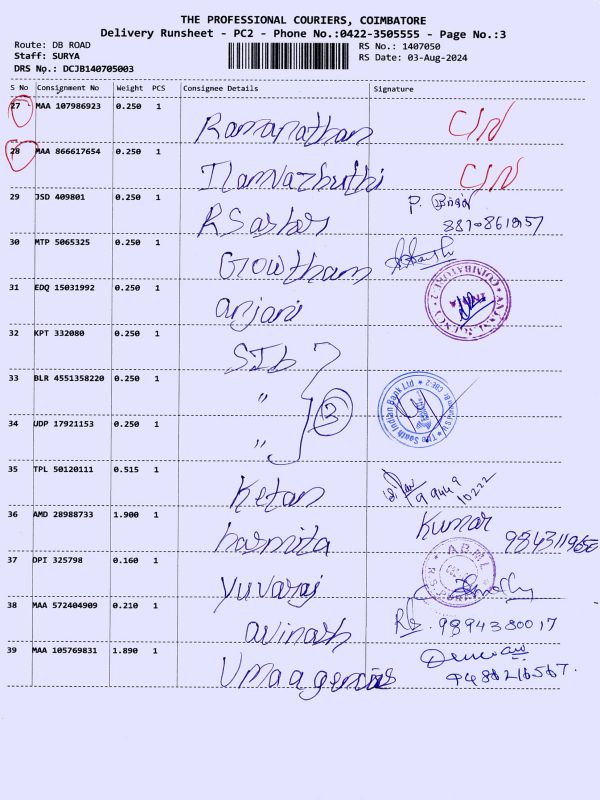 THE PROFESSIONAL COURIERS, COIMBATORE
Delivery Runsheet - PC2 - Phone No.:0422-3505555 - Page No.:3
Route: DB ROAD
RS No.: 1407050
Staff: SURYA
RS Date: 03-Aug-2024
DRS No.: DCJB140705003
S No Consignment No Weight PCS Consignee Details Signature
27 MAA 107986923 0.250 1 Ramanathan C/N
28 MAA 866617654 0.250 1 Ilamvazhuthi C/N
29 JSD 409801 0.250 1 R Sasher P.
30 MTP 5065325 0.250 1 Gowtham
31 EDQ 15031992 0.250 1 anjani COIMBATORE-2
32 KPT 332080 0.250 1 SIb
33 BLR 4551358220 0.250 1 " 3 The South Indian Bank Ltd
34 UDP 17921153 0.250 1 "
35 TPL 50120111 0.515 1 Ketan 99449 10222
36 AMD 28988733 1.900 1 harmita Kumar
37 DPI 325798 0.160 1 yuvaraj ABML
38 MAA 572404909 0.210 1 avinash 9894380017
39 MAA 105769831 1.890 1 Umaa agencies